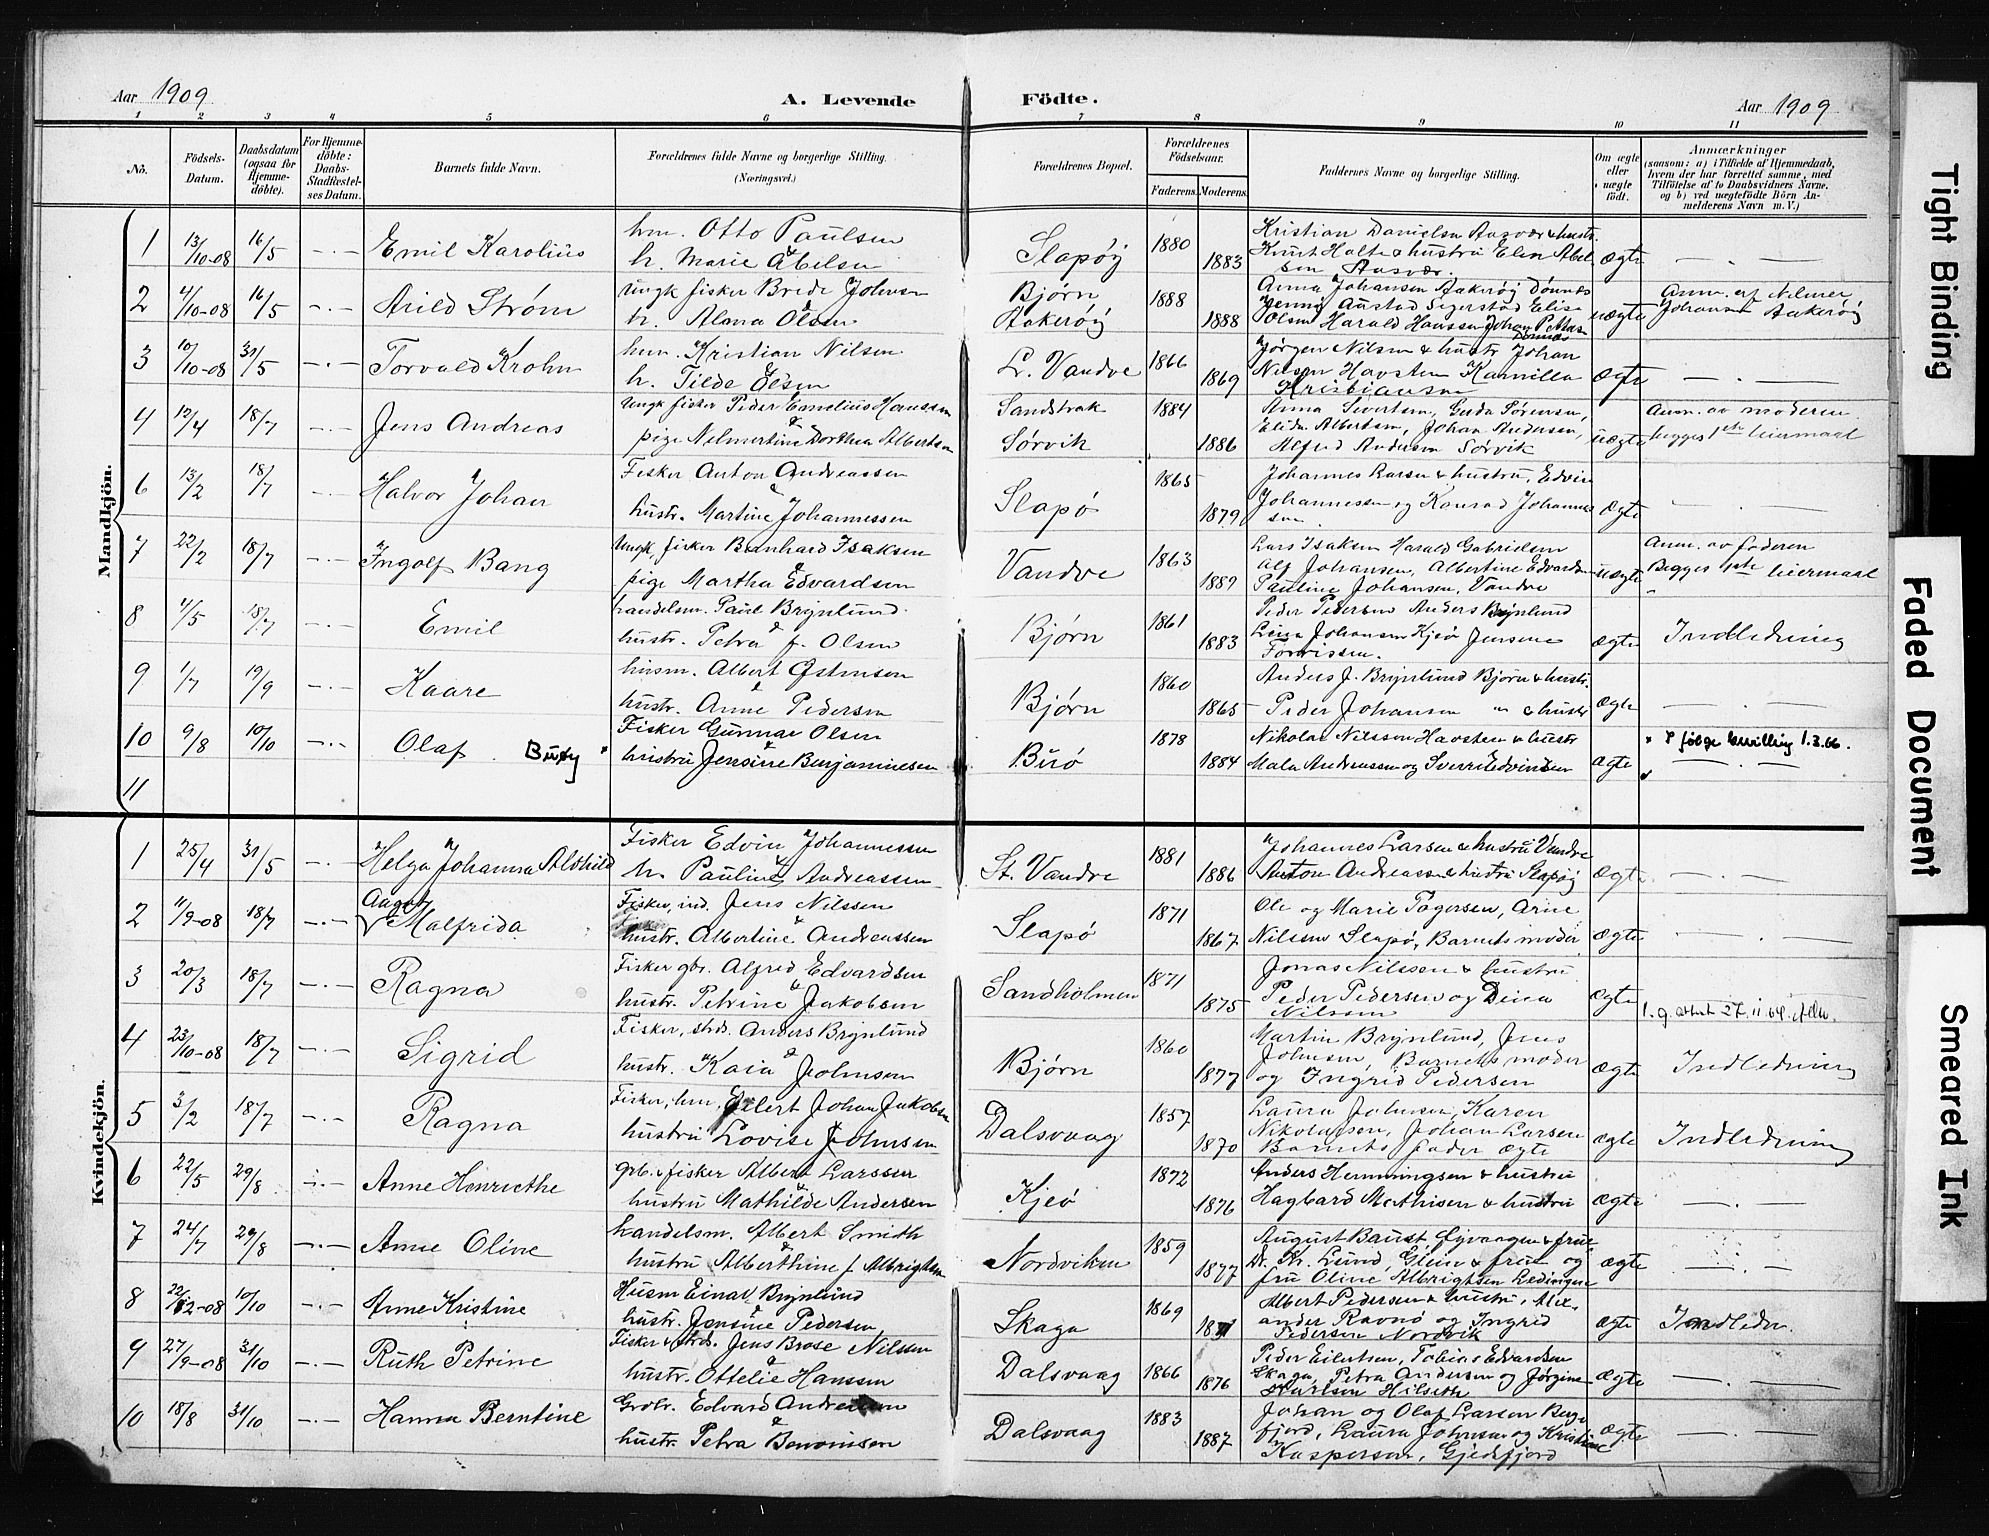 Aar 1909
A. Levende
Födte.
Aar 1909
1 2 3 4 5 6 7 8 9 10 11
No.
Födsels-Datum.
Daabsdatum (ogsaa for Hjemme-döbte).
For Hjemme-döbte: Daabs-Stadfæstel-ses Datum.
Barnets fulde Navn.
Forældrenes fulde Navne og borgerlige Stilling.
(Næringsvei.)
Forældrenes Bopæl.
Forældrenes Födselsaar.
Faderens. Moderens.
Faddernes Navne og borgerlige Stilling.
Om ægte eller uægte födt.
Anmærkninger
(saasom: a) i Tilfælde af Hjemmedaab,
hvem der har forrettet samme, med
Tilföielse af to Daabsvidners Navne.
og b) ved uægtefödte Börn An-
melderens Navn m. V.)
Mandkjön.
1 13/10-08 16/5 -·- Emil Karolius hm. Otto Paulsen & h. Marie Abelsen Slapøy 1880 1883 Kristian Danielsen Aasvær & hustr. Knut Holte & hustru Elen Abelsen Aasvær. ægte -·-
2 4/10-08 16/5 -·- Arild Strøm Ungk fisker Brede Johnsen & h. Alma Olsen Bjørn Aakerøy 1888 1888 Anna Johansen Aakerøy Dønnes Jenny Austad Segerstad Elise Olsen Harald Hansen Johan uægte Anm. af Johansen Aakerøy
3 10/10-08 31/5 -·- Torvald Krohn hm. Kristian Nilsen & h. Tilde Olsen L. Vandve 1866 1869 Jørgen Nilsen & hustr Johan Nilsen Havsten Kamilla Kristiansen ægte -·-
4 12/4 18/7 -·- Jens Andreas Ungk fisker Peder Cornelius Hanssen & pige Nelmertine Dorthea Albertsen Sandstrak Sørvik 1884 1886 Anna Sivertsen, Gerda Sørensen, Elida Albertsen, Johan Andersen, Alfred Andersen Sørvik uægte Anm. av moderen begges 1ste leiermaal
6 13/2 18/7 -·- Halvor Johan Fisker Anton Andreassen & hustr. Martine Johannessen Slapø 1865 1879 Johannes Larsen & hustru, Edvin Johannessen og Konrad Johannessen. ægte -·-
7 22/2 18/7 -·- Ingolf Bang Ungk, fisker Bernhard Isaksen & pige Martha Edvardsen Vandve 1863 1889 Lars Isaksen Harald Gabrielsen Alf Johansen, Albertine Edvardsen Pauline Johansen, Vandve uægte Anm. av faderen Begges 1ste leiermaal
8 4/5 18/7 -·- Emil handelsm. Paul Brynlund & hustr. Petra f. Olsen Bjørn 1861 1883 Peder Pedersen Anders Brynlund Johansen Kjeø Jensine ægte Indledning
9 1/7 19/9 -·- Kaare husm. Albert Østensen & hustr. Anne Pedersen Bjørn 1860 1865 Anders J. Brynlund Bjørn & hustr. Peder Johansen " & hustr ægte -·-
10 9/8 10/10 -·- Olaf Buøy * Fisker Gunnar Olsen & hustru Jensine Benjaminsen Buø 1878 1884 Nikolai Nilssen Havsten & hustr Mala Andreassen og Sverre Edvindsen ægte * I følge bevilling 1.3.66.
11
Kvindekjön.
1 25/4 31/5 -·- Helga Johanna Aldhild Fisker Edvin Johannessen & h. Pauline Andreassen St. Vandve 1881 1886 Johannes Larsen & hustru Vandve Anton Andreassen & hustru Slapøy ægte -·-
2 11/9-08 18/7 -·- Malfrida Fisker, ind. Jens Nilssen & hustr. Albertine Andreassen Slapø 1871 1867 Ole og Marie Togersen, Arne Nilssen Slapø, Barnets moder ægte -·-
3 20/3 18/7 -·- Ragna Fisker gbr. Alfred Edvardsen & hustr. Petrine Jakobsen Sandholmen 1871 1875 Jonas Nilssen & hustru Peder Pedersen og Dina Nilssen ægte 27.11.64.
4 23/10-08 18/7 -·- Sigrid Fisker, strds. Anders Brynlund & hustr. Kaia Johnsen Bjørn 1860 1877 Martin Brynlund, Jens Johnsen, Barnets moder og Ingrid Pedersen ægte Indledning
5 3/2 18/7 -·- Ragna Fisker, hm, Eilert Johan Jakobsen hustru Lovise Johnsen Dalsvaag 1857 1870 Laura Johnsen, Karen Nikolaisen, Johan Larsen Barnets fader ægte ægte Indledning
6 22/5 29/8 -·- Anne Henriethe grb. & fisker Albert Larssen & hustru Mathilde Andersen Kjeø 1872 1876 Anders Hemmingsen & hustru Hagbard Mathisen & hustru ægte -·-
7 24/7 29/8 -·- Anne Oline handelsm. Albert Smith & hustru Alberthine f. Albrigtsen Nordviken 1859 1877 August Baust Øyvaagen & frue Dr. Kr. Lund, Glein & frue og fru Oline Albrigtsen ægte -·-
8 22/12-08 10/10 -·- Anne Kristine Husm Einar Brynlund & hustr. Jensine Pedersen Skaga 1869 Albert Pedersen & hustru, Alexander Ravnø og Ingrid Pedersen Nordvik ægte Indledn.
9 27/9-08 31/10 -·- Ruth Petrine Fisker & strds. Jens Brose Nilsen & hustr. Ottelie Hanssen Dalsvaag 1866 1876 Peder Eilertsen, Tobias Edvardsen Skaga, Petra Andersen og Jørgine Karlsen Hilseth ægte -·-
10 18/8 31/10 -·- Hanna Berntine Grdbr. Edvard Andreassen & hustr. Petra Benonisen Dalsvaag 1883 1887 Johan og Olaf Larsen Bergfjord, Laura Johnsen og Kristine Kaspersen, Gjedsfjord ægte -·-
Tight Binding
Faded Document
Smeared Ink